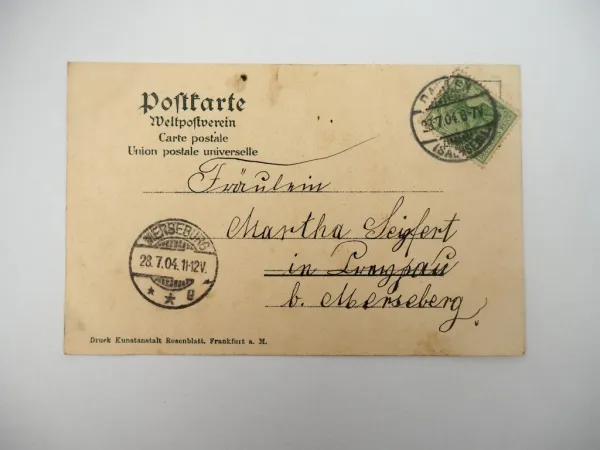 Postkarte
Weltpostverein
Carte postale
Union postale universelle
(SACHSEN)
7.04.
Fräulein
Martha Seifert
in
b. Merseberg
MERSEBURG
28.7.04.11-12V.
* * e
Druck Kunstanstalt Rosenblatt, Frankfurt a. M.